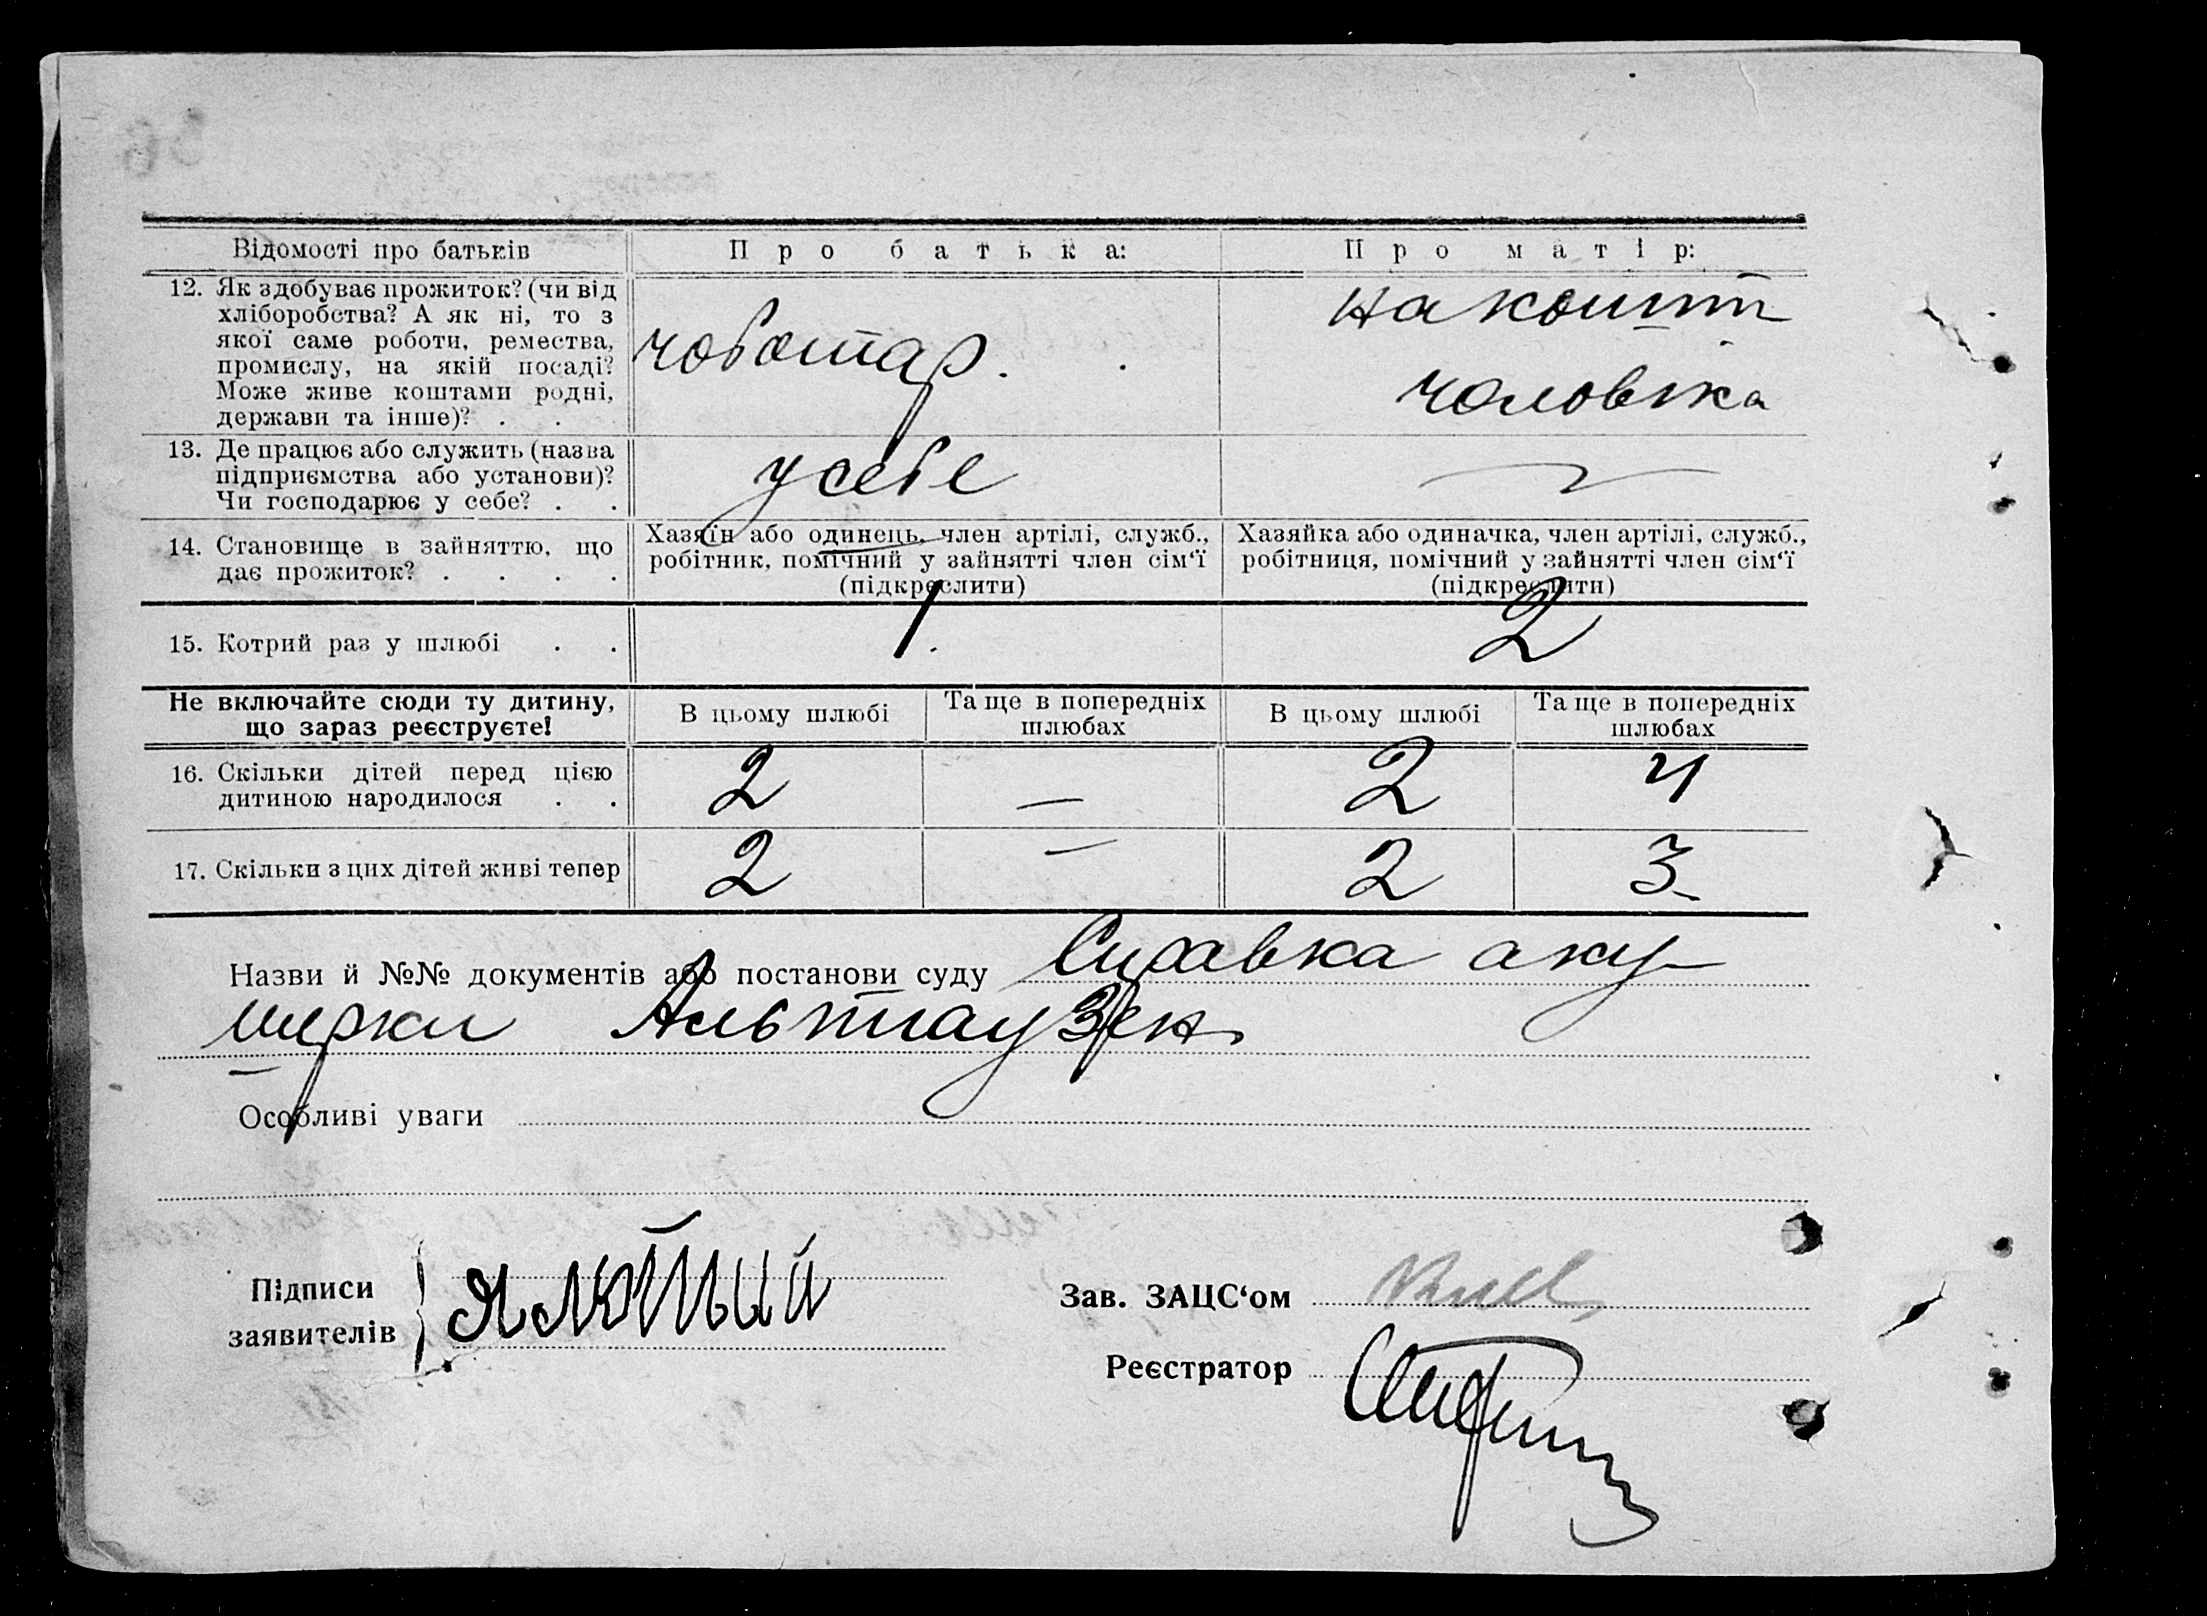 Відомості про батьків
Про батька:
Про матір:
12. Як здобуває прожиток? (чи від
хліборобства? А як ні, то з
якої саме роботи, ремества,
промислу, на якій посаді?
Може живе коштами родні,
держави та інше)? . .
чоботар.
на кошти
чоловіка
13. Де працює або служить (назва
підприємства або установи)?
Чи господарює у себе? . .
у себе
14. Становище в зайняттю, що
дає прожиток? . . . .
Хазяїн або одинець, член артілі, служб.,
робітник, помічний у зайнятті член сім‘ї
(підкреслити)
Хазяйка або одиначка, член артілі, служб.,
робітниця, помічний у зайнятті член сім‘ї
(підкреслити)
15. Котрий раз у шлюбі . .
1.
2
Не включайте сюди ту дитину,
що зараз реєструєте!
В цьому шлюбі
Та ще в попередніх
шлюбах
В цьому шлюбі
Та ще в попередніх
шлюбах
16. Скільки дітей перед цією
дитиною народилося . .
2
—
2
4
17. Скільки з цих дітей живі тепер
2
—
2
3
Назви й №№ документів або постанови суду Справка аку-
шерки Альтгаузен
Особливі уваги
Підписи
заявителів
Зав. ЗАЦС‘ом
Реєстратор